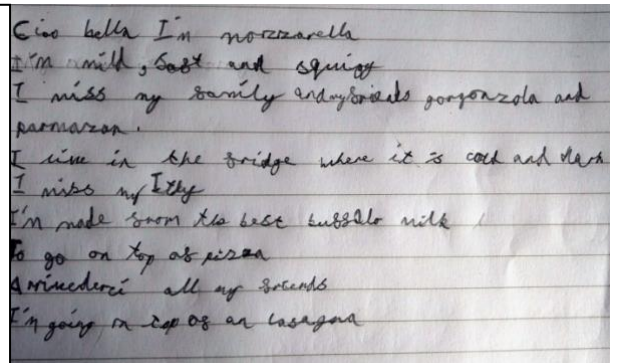 Ciao bella I'm mozzarella
I'm mild, soft and squigy
I miss my family and my friends gorgonzola and
parmazan.
I live in the fridge where it is cold and dark
I miss my Itly
I'm made from the best buffalo milk
To go on top of pizza
Arrivederci all my friends
I'm going on top of an lasagna